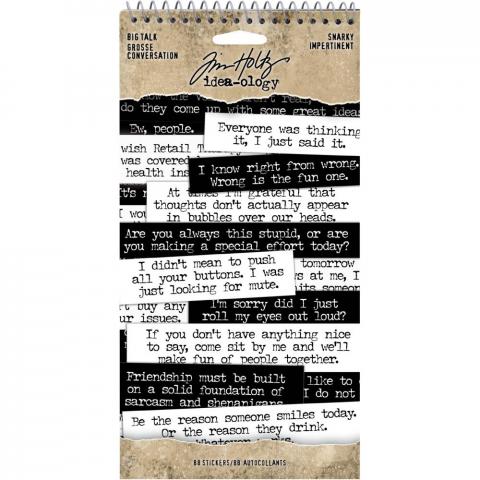 BIG TALK
GROSSE
CONVERSATION
SNARKY
IMPERTINENT
Tim Holtz
idea-ology
know the
real,
do they come up with some great ideas
Ew, people.
Everyone was thinking
it, I just said it.
wish Retail
was covered
health ins
I know right from wrong.
Wrong is the fun one.
It's
I wou
At times I'm grateful that
thoughts don't actually appear
in bubbles over our heads.
Are you always this stupid, or are
you making a special effort today?
I didn't mean to push
all your buttons. I was
just looking for mute.
tomorrow
s at me, I
its someone
t buy any
ur issues.
I'm sorry did I just
roll my eyes out loud?
If you don't have anything nice
to say, come sit by me and we'll
make fun of people together.
Friendship must be built
on a solid foundation of
sarcasm and shenanigans
like to
I do not
Be the reason someone smiles today.
Or the reason they drink.
Whatever
88 STICKERS/88 AUTOCOLLANTS